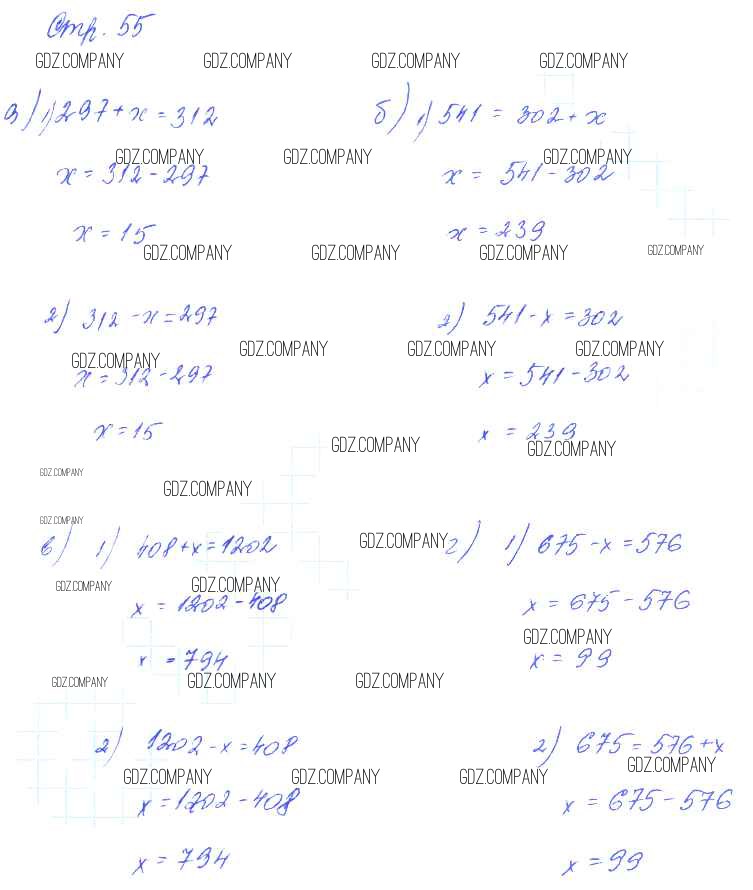 Стр. 55
GDZ.COMPANY GDZ.COMPANY GDZ.COMPANY GDZ.COMPANY
а) 1) 297 + x = 312
б) 1) 541 = 302 + x
GDZ.COMPANY GDZ.COMPANY GDZ.COMPANY
x = 312 - 297
x = 541 - 302
x = 15
x = 239
GDZ.COMPANY GDZ.COMPANY GDZ.COMPANY GDZ.COMPANY
2) 312 - x = 297
2) 541 - x = 302
GDZ.COMPANY GDZ.COMPANY GDZ.COMPANY GDZ.COMPANY
x = 312 - 297
x = 541 - 302
x = 15
x = 239
GDZ.COMPANY GDZ.COMPANY
GDZ.COMPANY GDZ.COMPANY
GDZ.COMPANY
в) 1) 408 + x = 1202
GDZ.COMPANY
г) 1) 675 - x = 576
GDZ.COMPANY GDZ.COMPANY
x = 1202 - 408
x = 675 - 576
GDZ.COMPANY
x = 794
x = 99
GDZ.COMPANY GDZ.COMPANY GDZ.COMPANY
2) 1202 - x = 408
2) 675 = 576 + x
GDZ.COMPANY GDZ.COMPANY GDZ.COMPANY GDZ.COMPANY
x = 1202 - 408
x = 675 - 576
x = 794
x = 99